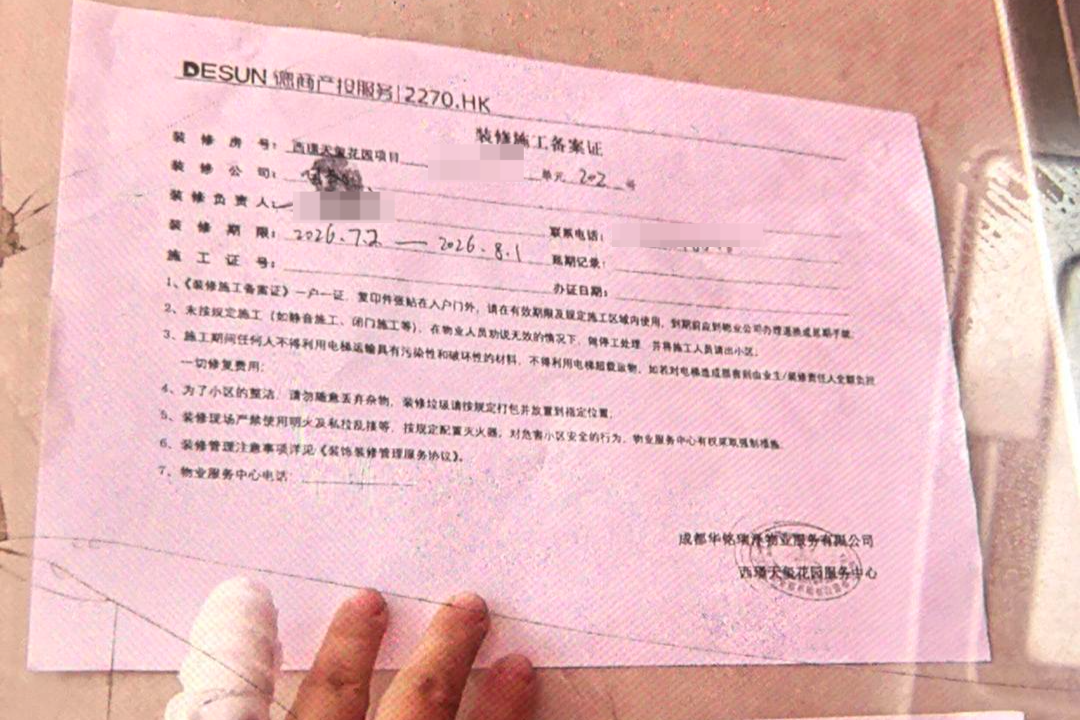 DESUN 德商产投服务|2270.HK
装修施工备案证
装修房号：西璟天玺花园项目 单元 202 号
装修公司：
装修负责人：
联系电话：
装修期限：2026.7.2 — 2026.8.1
延期记录：
施工证号：
办证日期：
1、《装修施工备案证》一户一证，复印件张贴在入户门外，请在有效期限及规定施工区域内使用，到期前应到物业公司办理退换或延期手续。
2、未按规定施工（如静音施工、闭门施工等），在物业人员劝说无效的情况下，做停工处理，并将施工人员请出小区；
3、施工期间任何人不得利用电梯运输具有污染性和破坏性的材料，不得利用电梯超载运物，如若对电梯造成损害则由业主/装修责任人全额负担
一切修复费用；
4、为了小区的整洁，请勿随意丢弃杂物，装修垃圾请按规定打包并放置到指定位置；
5、装修现场严禁使用明火及私拉乱接等，按规定配置灭火器，对危害小区安全的行为，物业服务中心有权采取强制措施。
6、装修管理注意事项详见《装饰装修管理服务协议》。
7、物业服务中心电话
成都华铭瑞泽物业服务有限公司
西璟天玺花园服务中心